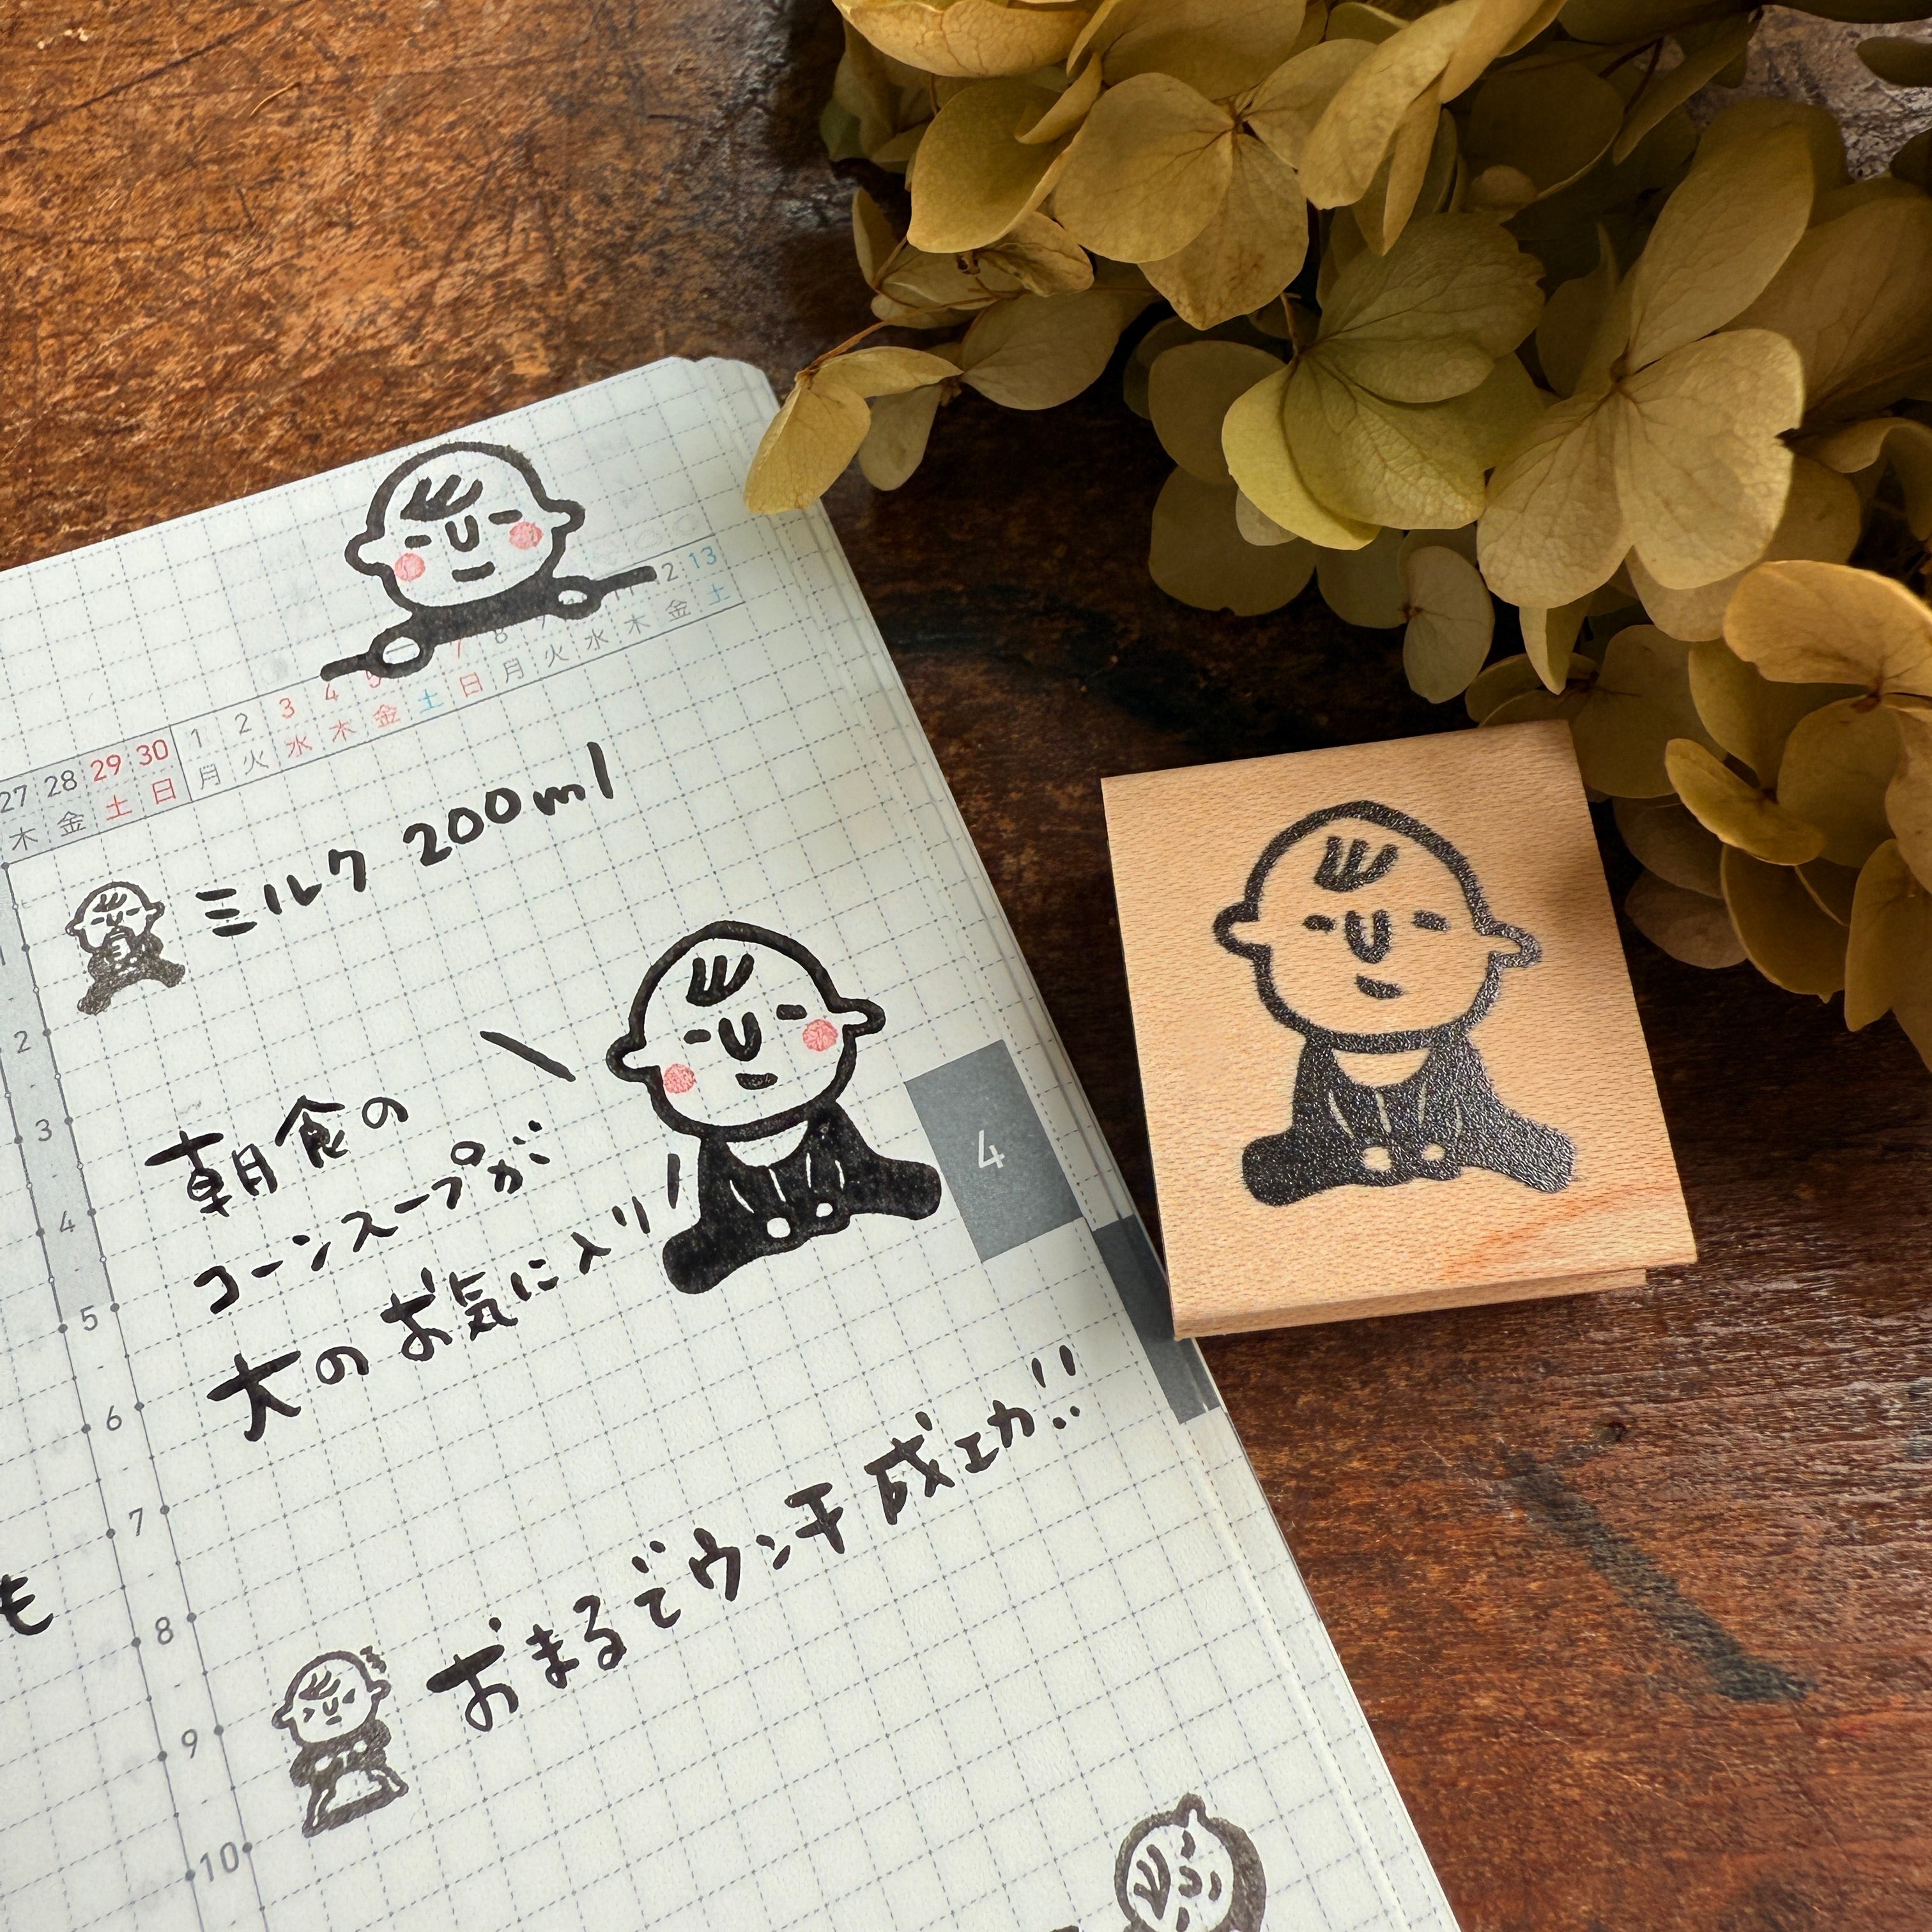 27 28 29 30 1 2 3 4 5 7 8 2 13
木 金 土 日 月 火 水 木 金 土 日 月 火 水 木 金 土
ミルク 200ml
朝食の
コーンスープが
大のお気に入り!
おまるでウンチ成功!!
も
2
3
4
5
6
7
8
9
10
4